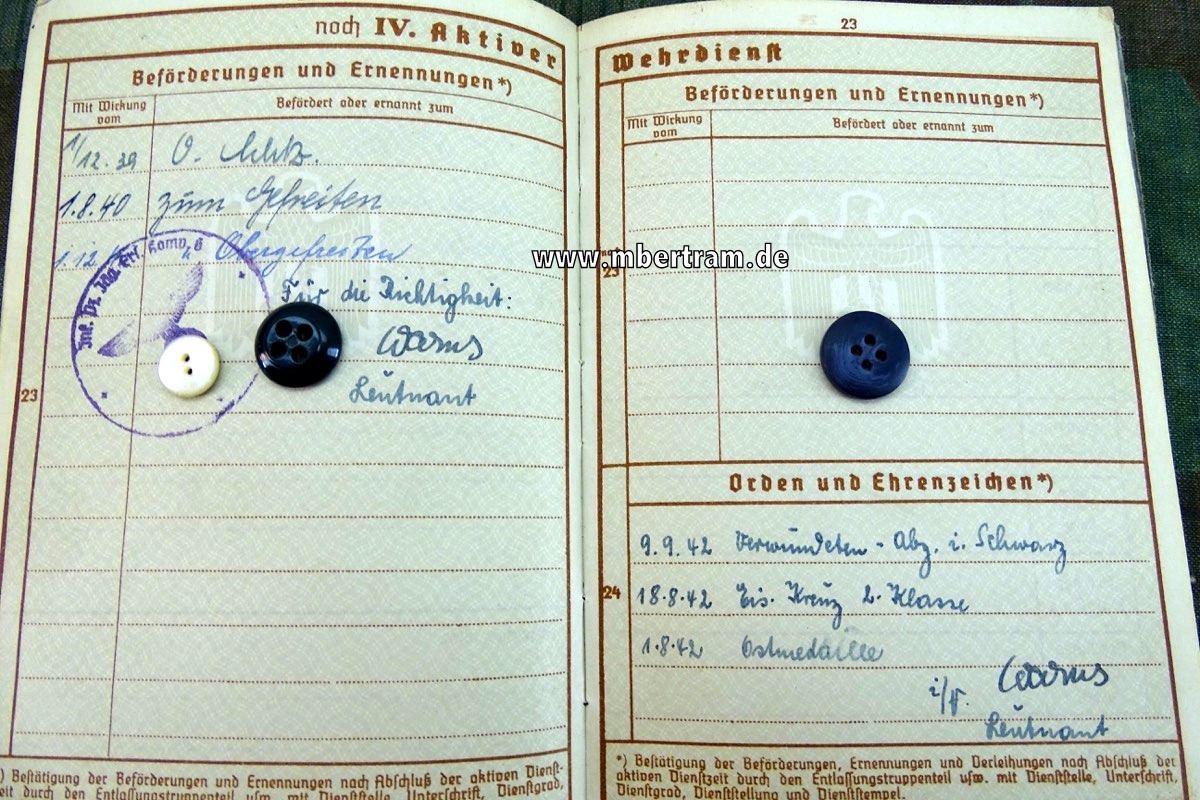 noch IV. Aktiver
Beförderungen und Ernennungen*)
Mit Wirkung vom
Befördert oder ernannt zum
1/12. 39 O.
1.8.40 zum Gefreiten
1.12. Obergefreiten
Für die Richtigkeit:
Warns
Leutnant
23
*) Bestätigung der Beförderungen und Ernennungen nach Abschluß der aktiven Dienst-
zeit durch den Entlassungstruppenteil usw. mit Dienststelle, Unterschrift, Dienstgrad,
23
Wehrdienst
Beförderungen und Ernennungen*)
Mit Wirkung vom
Befördert oder ernannt zum
www.mbertram.de
23
Orden und Ehrenzeichen*)
9.9.42 Verwundeten-Abz. i. Schwarz
24
18.8.42 Eis. Kreuz 2. Klasse
1.8.42 Ostmedaille
i/V. Warns
Leutnant
*) Bestätigung der Beförderungen, Ernennungen und Verleihungen nach Abschluß der
aktiven Dienstzeit durch den Entlassungstruppenteil usw. mit Dienststelle, Unterschrift,
Dienstgrad, Dienststellung und Dienststempel.